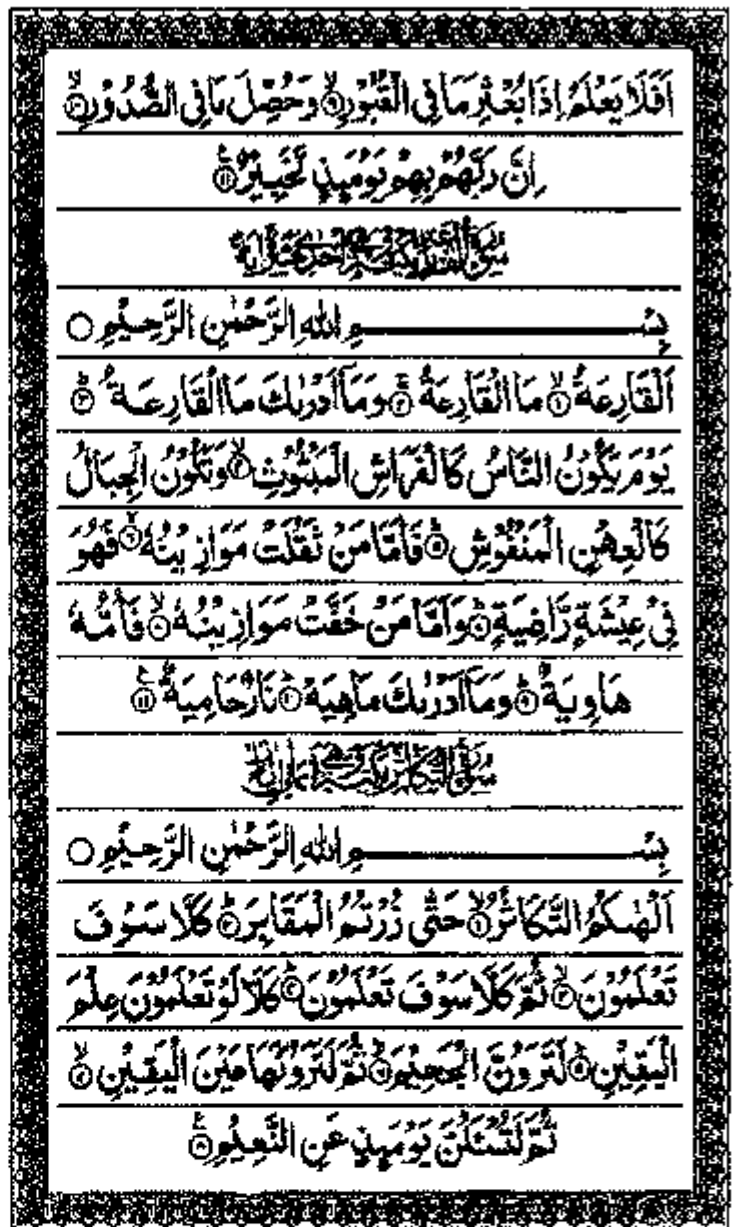 اَفَلَا يَعْلَمُ اِذَا بُعْثِرَ مَا فِي الْقُبُوْرِۙ۹ وَحُصِّلَ مَا فِي الصُّدُوْرِۙ۱۰
اِنَّ رَبَّهُمْ بِهِمْ يَوْمَىِٕذٍ لَّخَبِيْرٌ۱۱
سُوْرَةُ الْقَارِعَةِ مَكِّيَّةٌ
بِسْمِ اللّٰهِ الرَّحْمٰنِ الرَّحِيْمِ ○
اَلْقَارِعَةُۙ۱ مَا الْقَارِعَةُۚ۲ وَمَاۤ اَدْرٰىكَ مَا الْقَارِعَةُؕ۳
يَوْمَ يَكُوْنُ النَّاسُ كَالْفَرَاشِ الْمَبْثُوْثِۙ۴ وَتَكُوْنُ الْجِبَالُ
كَالْعِهْنِ الْمَنْفُوْشِؕ۵ فَاَمَّا مَنْ ثَقُلَتْ مَوَازِيْنُهٗۙ۶ فَهُوَ
فِيْ عِيْشَةٍ رَّاضِيَةٍؕ۷ وَاَمَّا مَنْ خَفَّتْ مَوَازِيْنُهٗۙ۸ فَاُمُّهٗ
هَاوِيَةٌؕ۹ وَمَاۤ اَدْرٰىكَ مَاهِيَهْؕ۱۰ نَارٌ حَامِيَةٌ۱۱
سُوْرَةُ التَّكَاثُرِ مَكِّيَّةٌ
بِسْمِ اللّٰهِ الرَّحْمٰنِ الرَّحِيْمِ ○
اَلْهٰىكُمُ التَّكَاثُرُۙ۱ حَتّٰى زُرْتُمُ الْمَقَابِرَؕ۲ كَلَّا سَوْفَ
تَعْلَمُوْنَۙ۳ ثُمَّ كَلَّا سَوْفَ تَعْلَمُوْنَؕ۴ كَلَّا لَوْ تَعْلَمُوْنَ عِلْمَ
الْيَقِيْنِؕ۵ لَتَرَوُنَّ الْجَحِيْمَۙ۶ ثُمَّ لَتَرَوُنَّهَا عَيْنَ الْيَقِيْنِۙ۷
ثُمَّ لَتُسْـَٔلُنَّ يَوْمَىِٕذٍ عَنِ النَّعِيْمِ۸